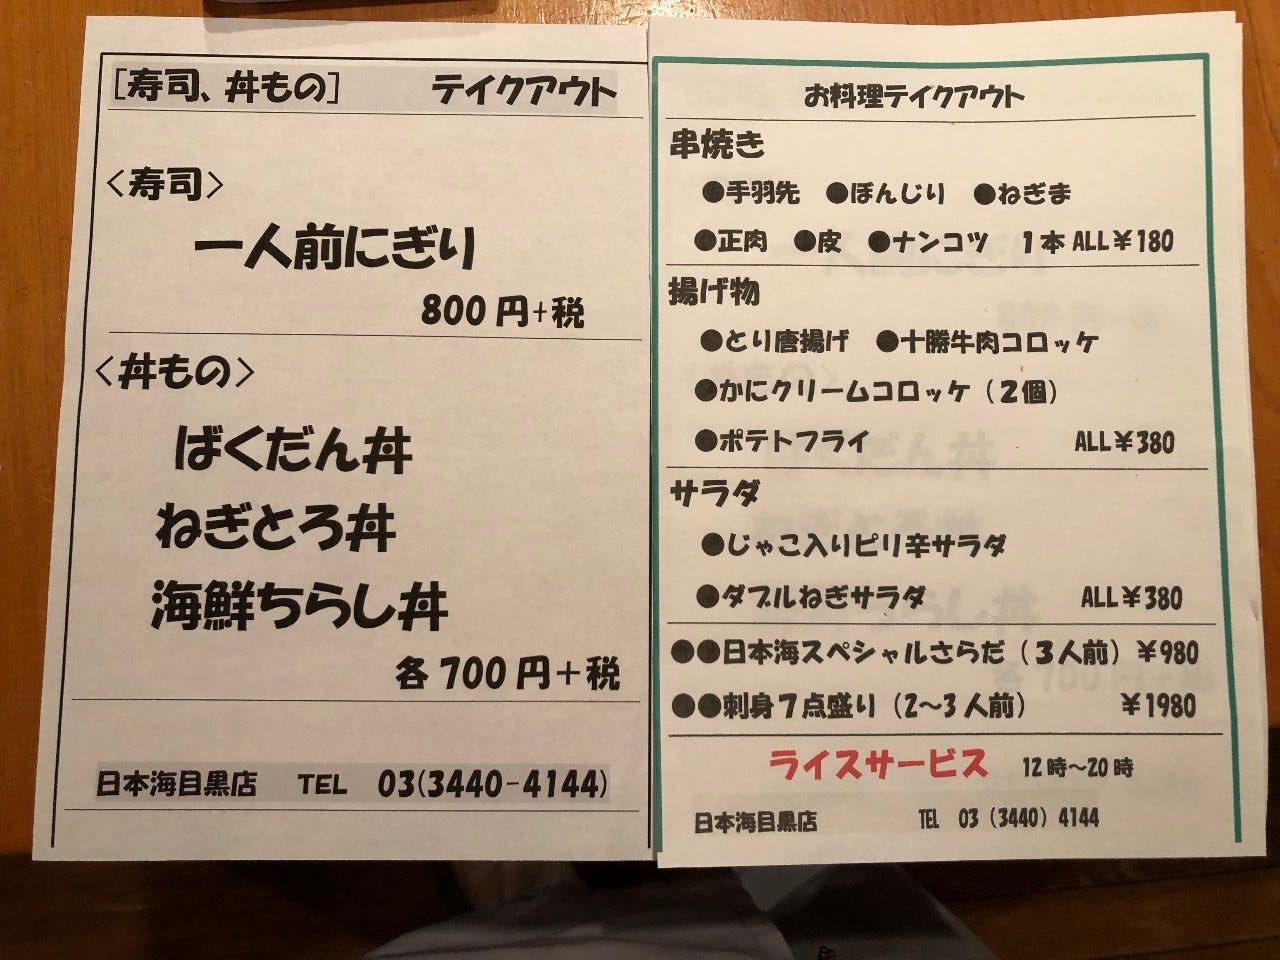 [寿司、丼もの] テイクアウト
<寿司>
一人前にぎり
800円+税
<丼もの>
ばくだん丼
ねぎとろ丼
海鮮ちらし丼
各700円+税
日本海目黒店 TEL 03(3440-4144)
お料理テイクアウト
串焼き
●手羽先 ●ぼんじり ●ねぎま
●正肉 ●皮 ●ナンコツ 1本ALL¥180
揚げ物
●とり唐揚げ ●十勝牛肉コロッケ
●かにクリームコロッケ(2個)
●ポテトフライ ALL¥380
サラダ
●じゃこ入りピリ辛サラダ
●ダブルねぎサラダ ALL¥380
●●日本海スペシャルさらだ(3人前)¥980
●●刺身7点盛り(2~3人前) ¥1980
ライスサービス 12時~20時
日本海目黒店 TEL 03(3440)4144